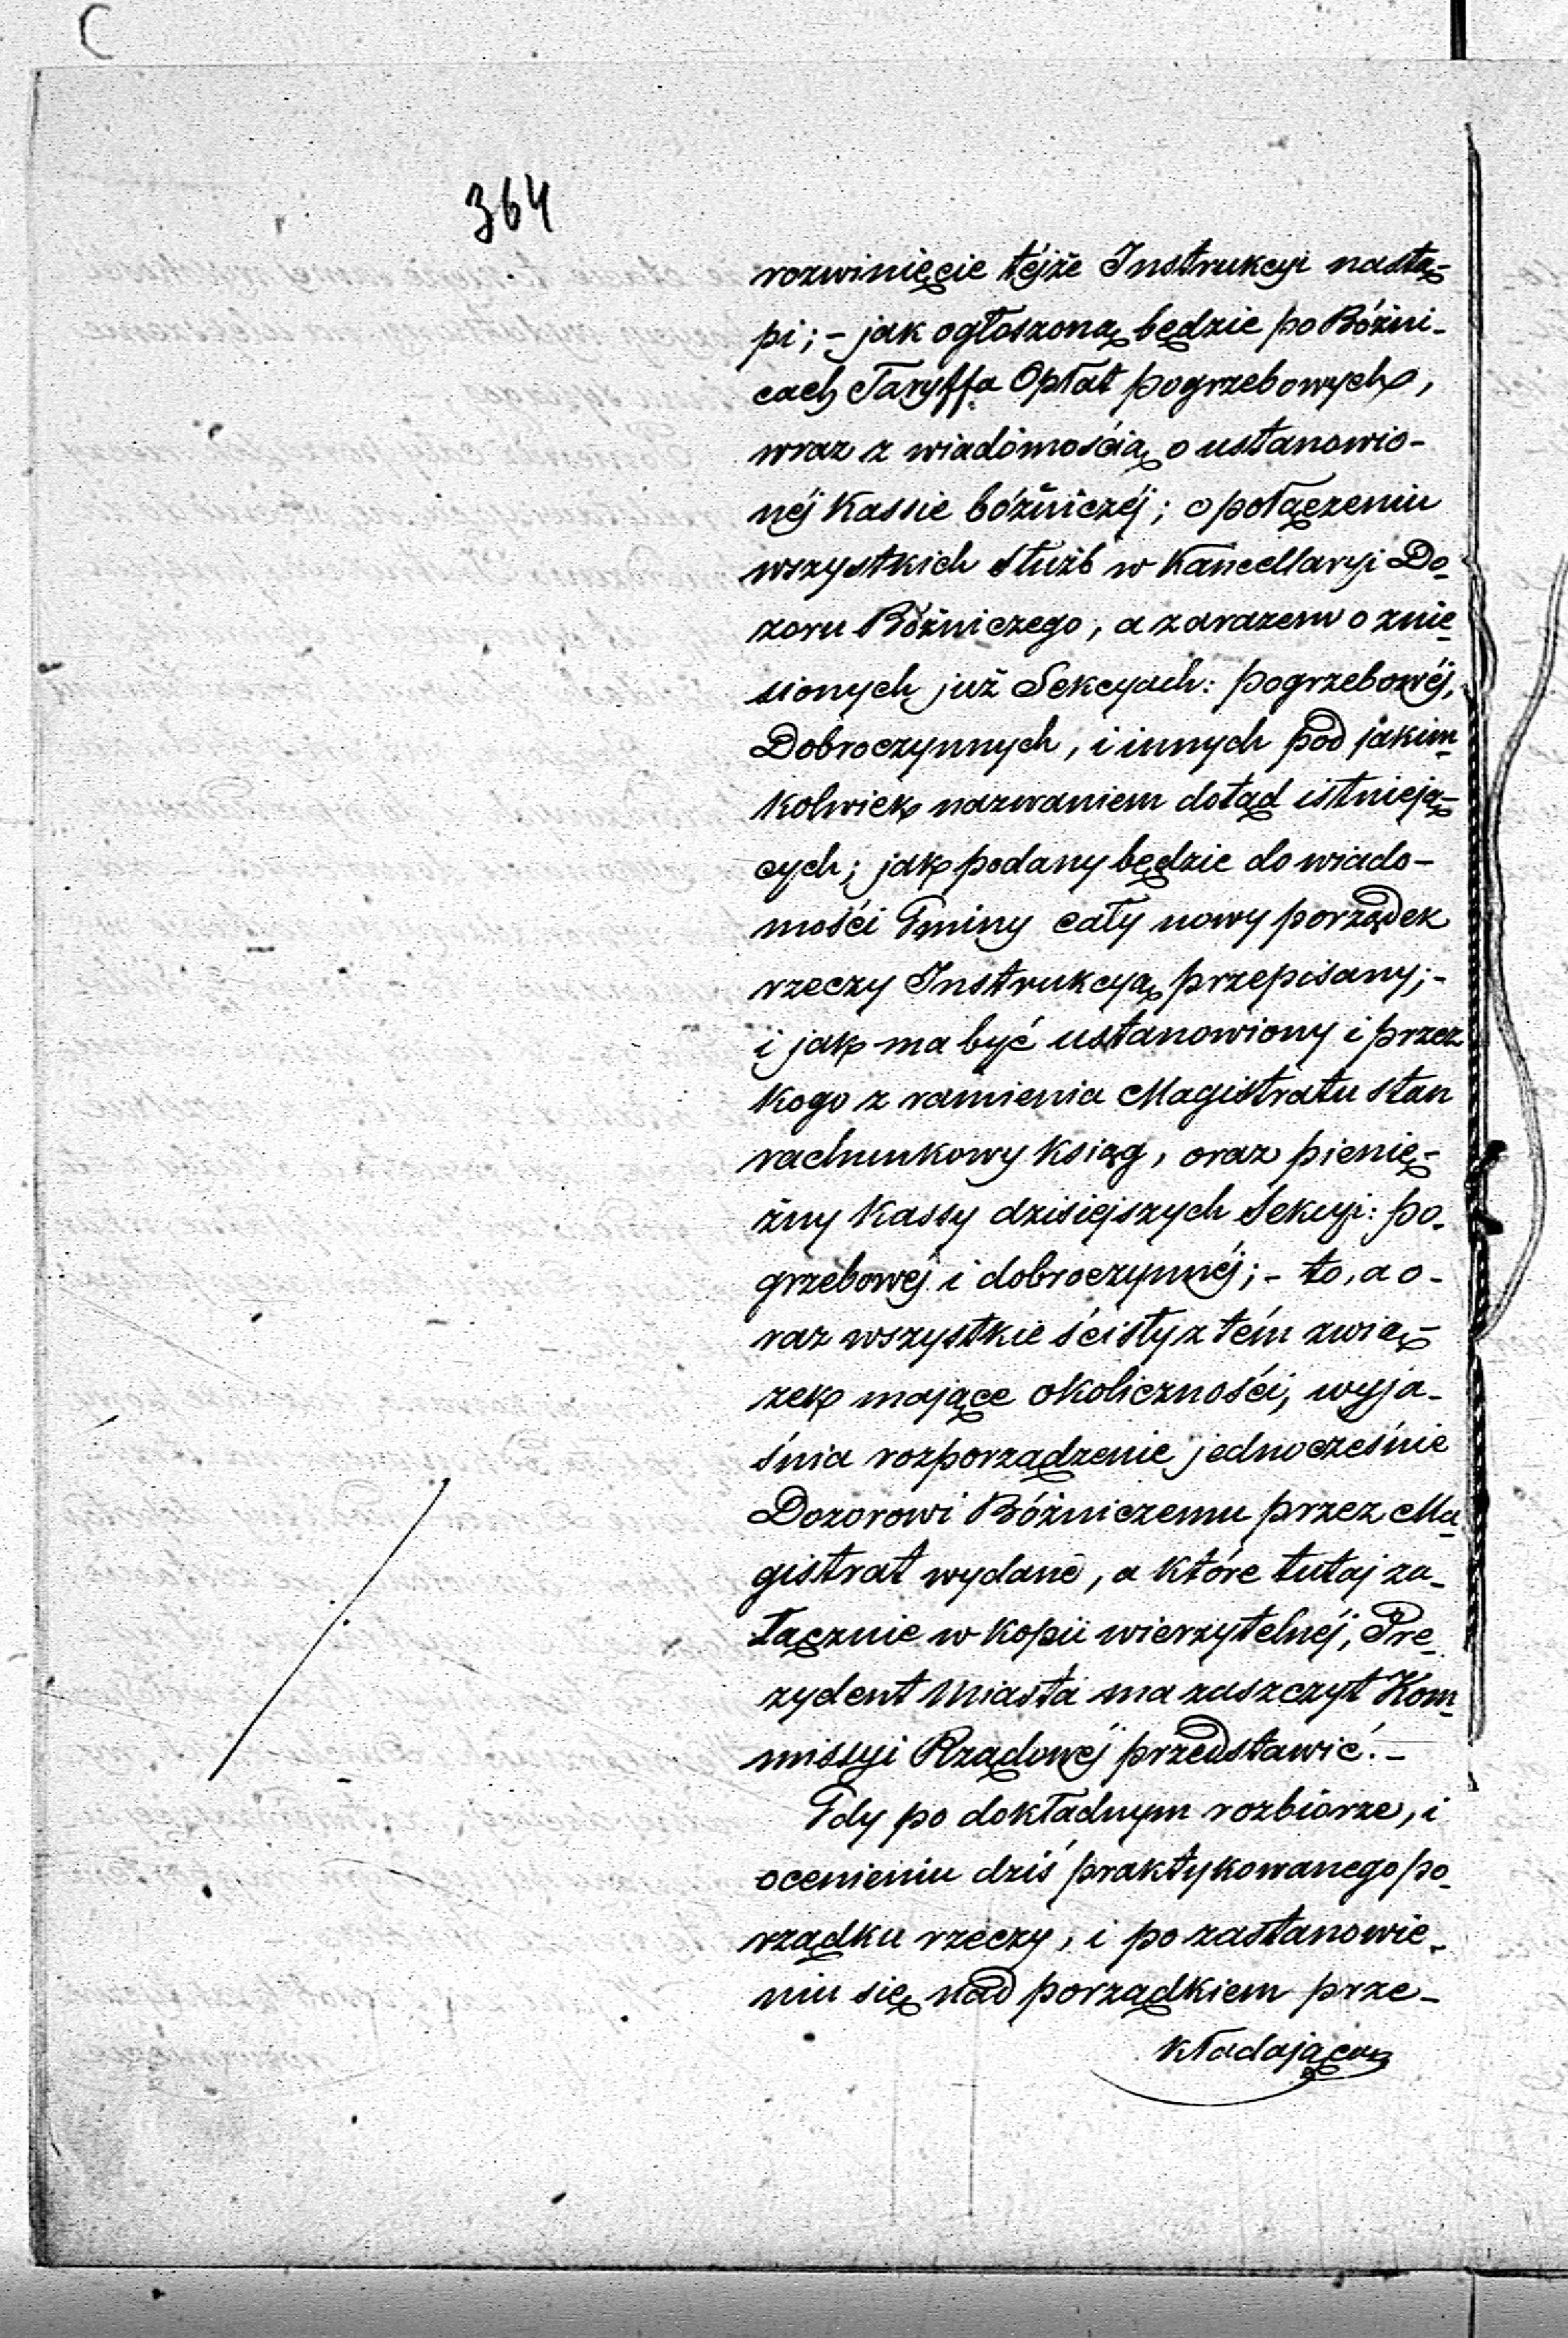 364
rozwinięcie téjże Instrukcyi nastą-
pi; - jak ogłoszoną będzie po Bóżni-
cach Taryffa Opłat pogrzebowych,
wraz z wiadomością o ustanowio-
néj Kassie bóżniczéj; o połączeniu
wszystkich służb w Kancellaryi Do-
zoru Bóżniczego, a zarazem o znie-
sionych już Sekcyach: pogrzebowéj,
Dobroczynnych, i innych pod jakim-
kolwiek nazwaniem dotąd istnieją-
cych; jak podany będzie do wiado-
mości Gminy cały nowy porządek
rzeczy Instrukcyą przepisany; -
i jak ma być ustanowiony i przez
kogo z ramienia Magistratu stan
rachunkowy ksiąg, oraz pienię-
żny Kassy dzisiejszych Sekcyi: po-
grzebowéj i dobroczynnéj; - to, a o-
raz wszystkie ścisły z tém zwią-
zek mające okoliczności, wyja-
śnia rozporządzenie jednocześnie
Dozorowi Bóżniczemu przez Ma-
gistrat wydane, a które tutaj za-
łącznie w kopii wierzytelnéj, Pre-
zydent Miasta ma zaszczyt Kom-
missyi Rządowéj przedstawić. -
Gdy po dokładnym rozbiorze, i
ocenieniu dziś praktykowanego po-
rządku rzeczy, i po zastanowie-
niu się nad porządkiem prze-
kładającą